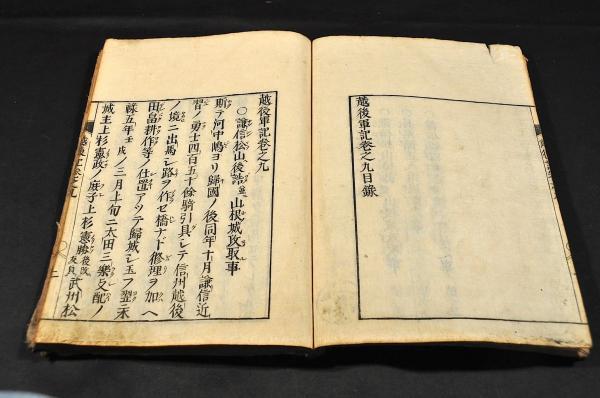 越後軍記卷之九目録
越後軍記卷之九
○謙信松山後詰並山根城攻取事
斯テ河中嶋ヨリ歸國ノ後同年十月謙信近
習ノ勇士四百五十餘騎引具シテ信州越後
ノ境ニ出馬シ路ヲ作セ橋ナド修理ヲ加ヘ
田畠耕作等ノ仕置アツテ歸城シ玉フ翌永
祿五年壬戌ノ三月上旬ニ太田三樂支配ノ
城主上杉憲政ノ庶子上杉憲勝後改友貞武州松
越後軍記卷之九